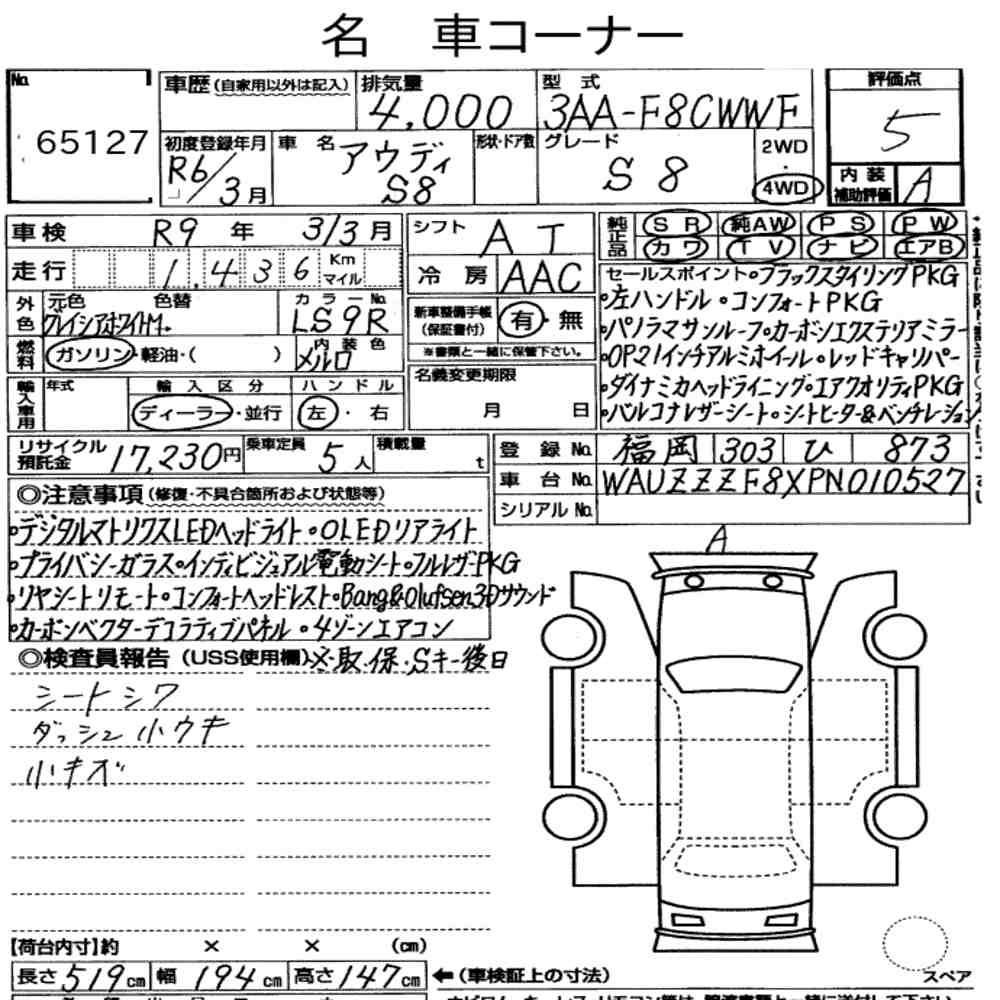 名 車コーナー
No.
65127
車歴(自家用以外は記入)
排気量
4,000
型 式
3AA-F8CWWF
評価点
5
初度登録年月
R6/3月
車 名
アウディ
S8
形状・ドア数
グレード
S 8
2WD
・
4WD
内 装
補助評価
A
車検
R9 年 3/3月
走行
1,436
Km
マイル
シフト
A T
冷 房
AAC
純正品
SR 純AW PS PW
カワ TV ナビ エアB
外色
元色 色替
グレイシアホワイトM
カラーNo.
LS9R
燃料
ガソリン・軽油・( )
内装色
メルロ
新車整備手帳
(保証書付)
有・無
※書類と一緒に保管下さい。
輸入車用
年式
輸入区分
ディーラー・並行
ハンドル
左・右
名義変更期限
月 日
セールスポイント・ブラックスタイリングPKG
・左ハンドル・コンフォートPKG
・パノラマサンルーフ・カーボンエクステリアミラー
・OP21インチアルミホイール・レッドキャリパー
・ダイナミカヘッドライニング・エアクオリティPKG
・バルコナレザーシート・シートヒーター&ベンチレーション
リサイクル
預託金
17,230円
乗車定員
5人
積載量
t
登録No.
福岡 303 ひ 873
車台No.
WAUZZZF8XPN010527
シリアルNo.
◎注意事項(修復・不具合箇所および状態等)
・デジタルマトリクスLEDヘッドライト・OLEDリアライト
・プライバシーガラス・インディビジュアル電動シート・フルレザーPKG
・リヤシートリモート・コンフォートヘッドレスト・Bang&Olufsen3Dサウンド
・カーボンベクターデコラティブパネル・4ゾーンエアコン
◎検査員報告(USS使用欄)※取.保.Sキー後日
シートシワ
ダッシュ小ウキ
小キズ
A
【荷台内寸】約 × × (cm)
長さ519cm 幅194cm 高さ147cm ←(車検証上の寸法)
スペア